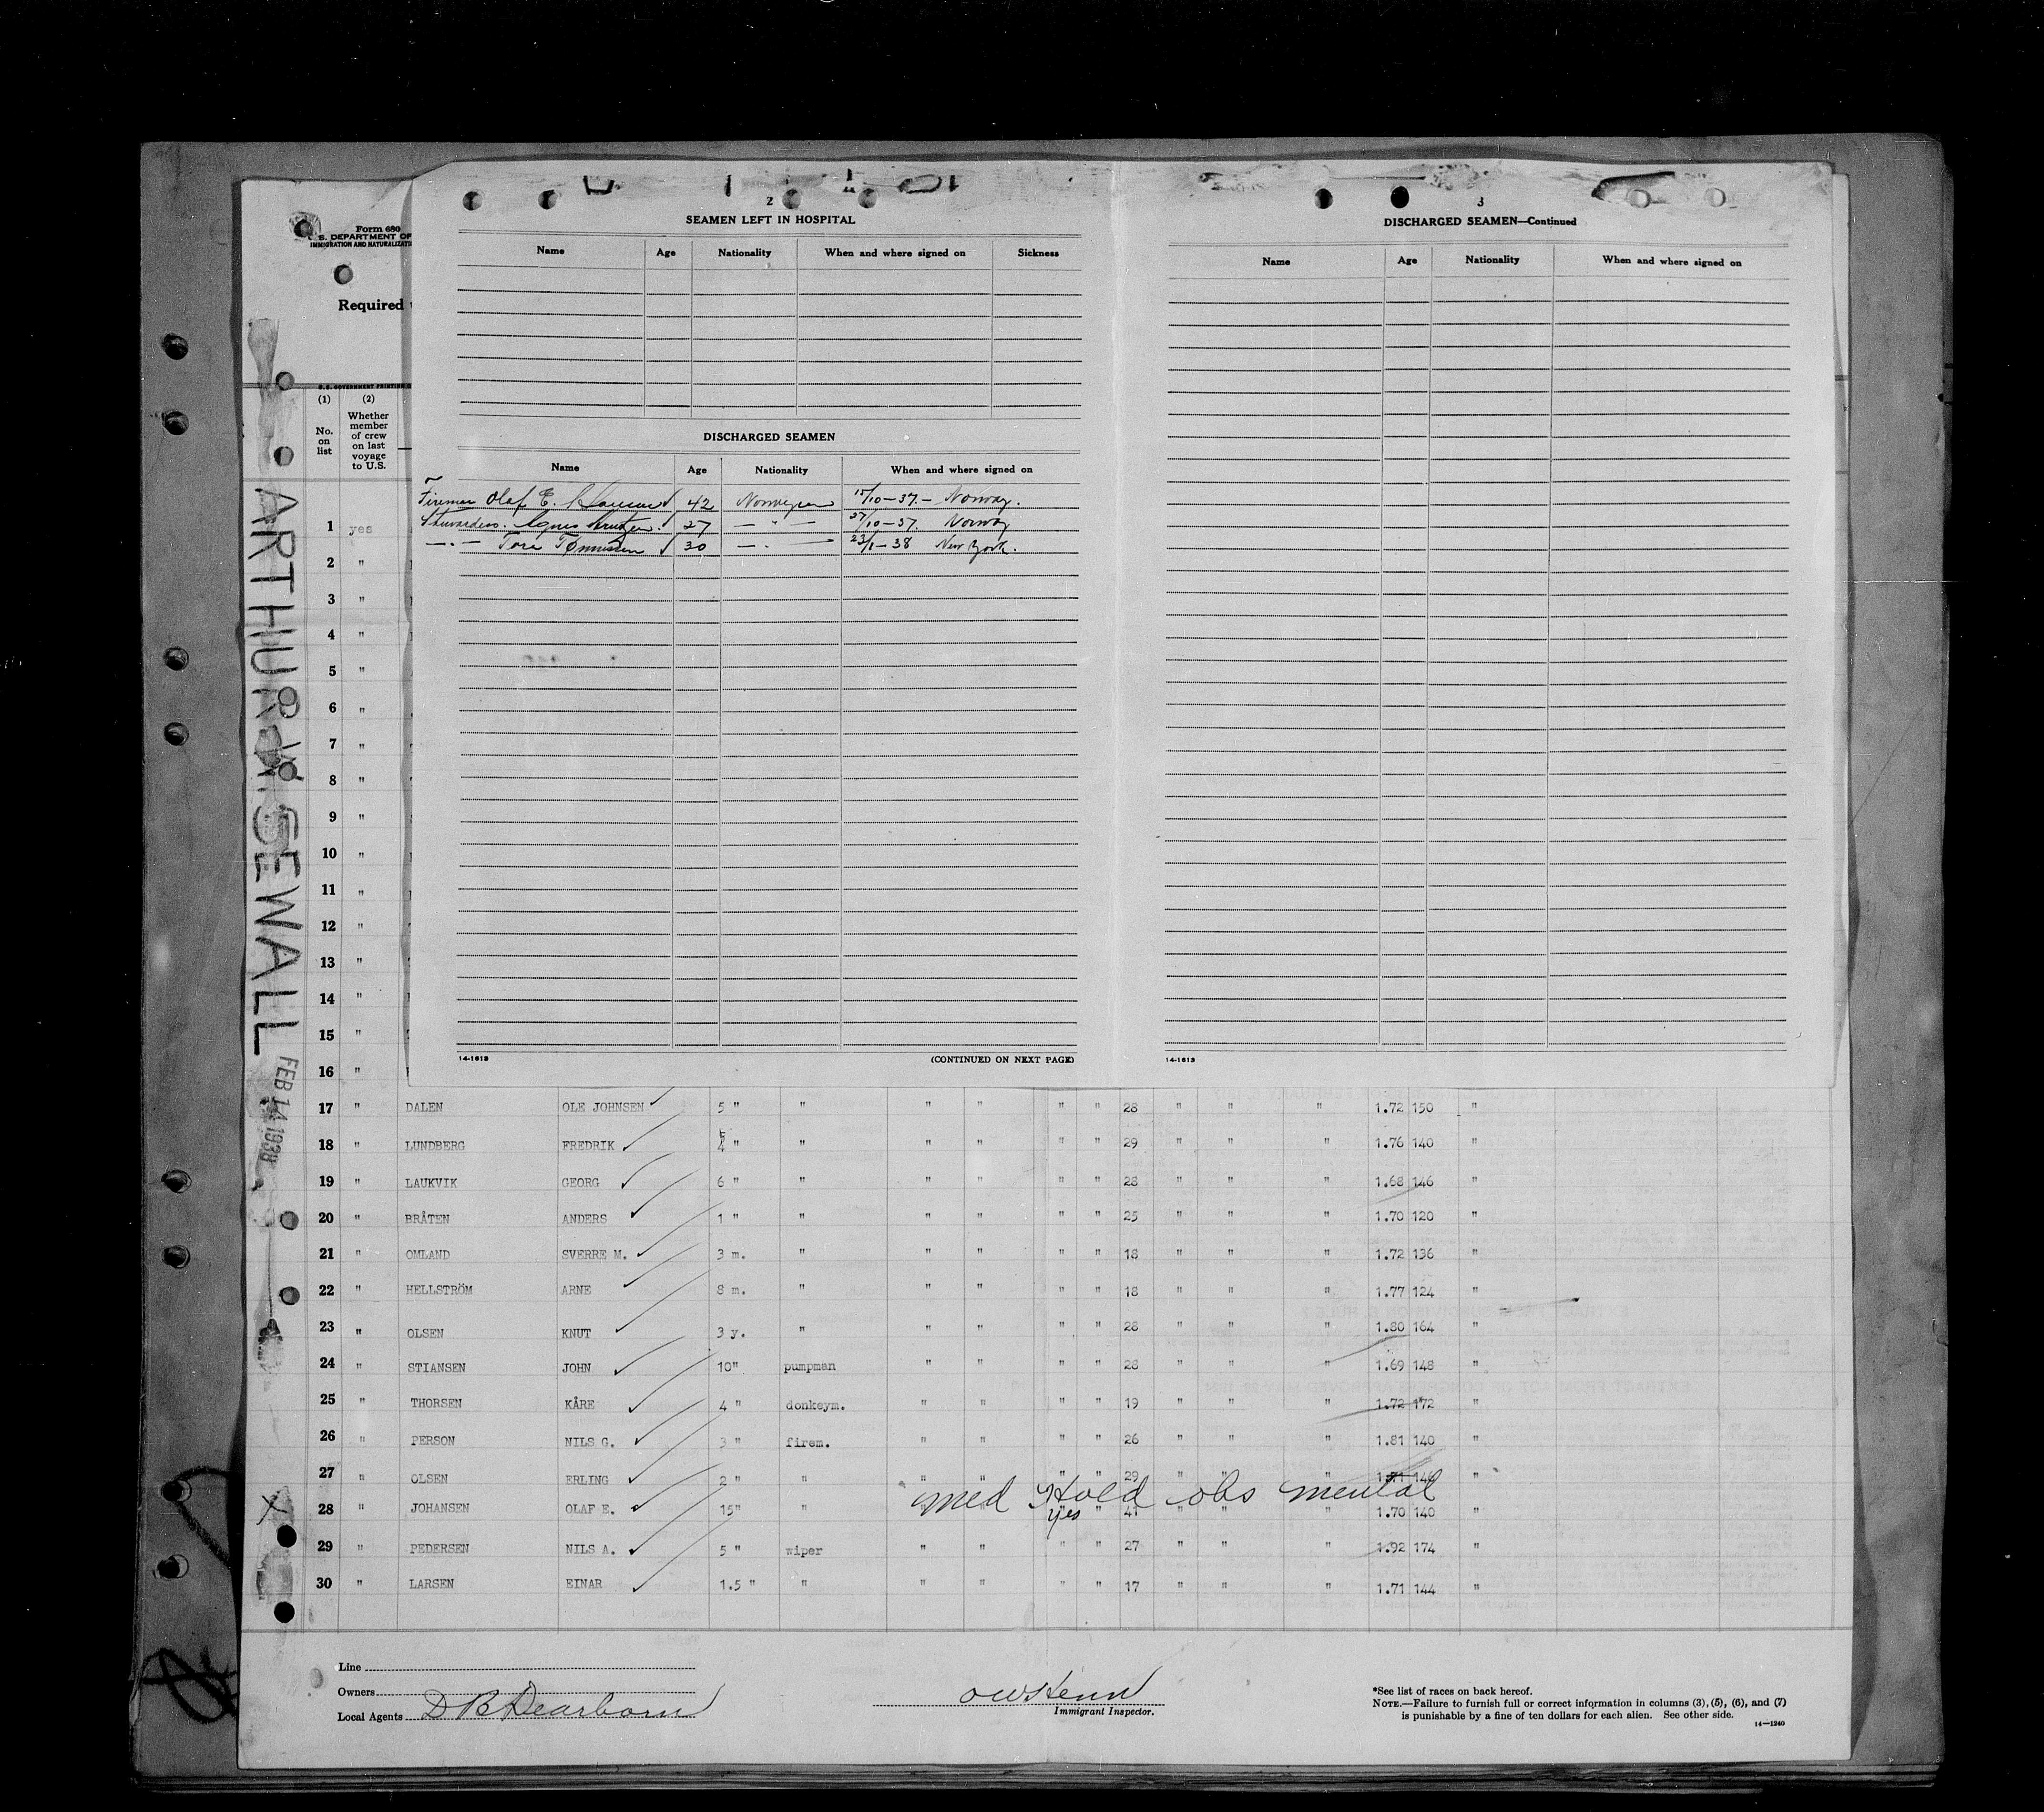 Form 680
S. DEPARTMENT OF
IMMIGRATION AND NATURALIZATI
Required
U.S. GOVERNMENT PRINTING
(1) (2)
No. on list
Whether member of crew on last voyage to U.S.
ARTHUR W. SEWALL
FEB 14 1938
2
SEAMEN LEFT IN HOSPITAL
Name Age Nationality When and where signed on Sickness
DISCHARGED SEAMEN
Name Age Nationality When and where signed on
Fireman Olaf E. 42 Norwegian 15/10-37.- Norway.
Stewardess. Agnes 27 — " — 27/10-37. Norway
—"— Tora Tönnessen 30 —"— 23/1-38 New York.
14-1613
(CONTINUED ON NEXT PAGE)
3
DISCHARGED SEAMEN—Continued
Name Age Nationality When and where signed on
14-1613
1 yes
2 "
3 "
4 "
5 "
6 "
7 "
8 "
9 "
10 "
11 "
12 "
13 "
14 "
15 "
16 "
17 " DALEN OLE JOHNSEN 5 " " " " " " 28 " " " 1.72 150 "
18 " LUNDBERG FREDRIK " " " " " " 29 " " " 1.76 140 "
19 " LAUKVIK GEORG 6 " " " " " " 28 " " " 1.68 146 "
20 " BRÅTEN ANDERS 1 " " " " " " 25 " " " 1.70 120 "
21 " OMLAND SVERRE M. 3 m. " " " " " 18 " " " 1.72 136 "
22 " HELLSTRÖM ARNE 8 m. " " " " " 18 " " " 1.77 124 "
23 " OLSEN KNUT 3 y. " " " " " 28 " " " 1.80 164 "
24 " STIANSEN JOHN 10" pumpman " " " " 28 " " " 1.69 148 "
25 " THORSEN KÅRE 4 " donkeym. " " " " 19 " " " 1.72 172 "
26 " PERSON NILS G. 3 " firem. " " " " 26 " " " 1.81 140 "
27 " OLSEN ERLING 2 " " " " " " 29 " " " 1.71 146 "
med Hold obs mental
X 28 " JOHANSEN OLAF E. 15" " " " yes " 41 " " " 1.70 140 "
29 " PEDERSEN NILS A. 5 " wiper " " " " 27 " " " 1.92 174 "
30 " LARSEN EINAR 1.5 " " " " " " 17 " " " 1.71 144 "
Line
Owners
Local Agents D B Dearborn
Immigrant Inspector.
*See list of races on back hereof.
NOTE.—Failure to furnish full or correct information in columns (3), (5), (6), and (7)
is punishable by a fine of ten dollars for each alien. See other side.
14—1240